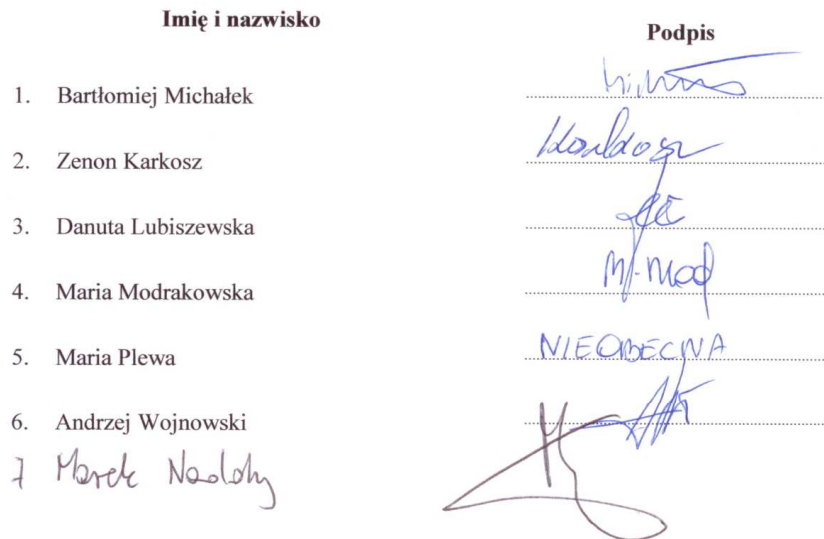 Imię i nazwisko Podpis
1. Bartłomiej Michałek
2. Zenon Karkosz
3. Danuta Lubiszewska
4. Maria Modrakowska M. Mod
5. Maria Plewa NIEOBECNA
6. Andrzej Wojnowski
7 Marek